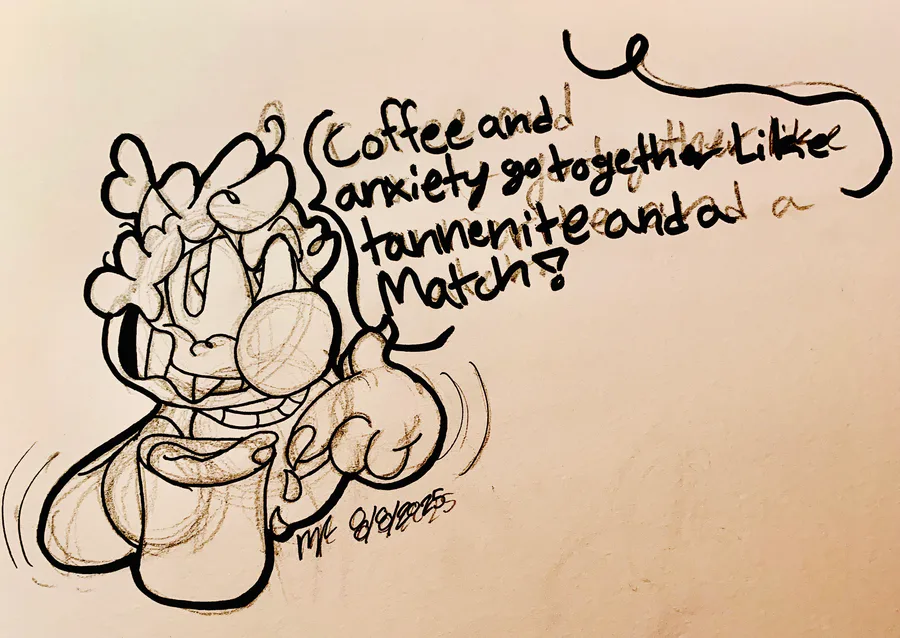 Coffee and
anxiety go together Like
tannenite and a
Match!
8/8/2025